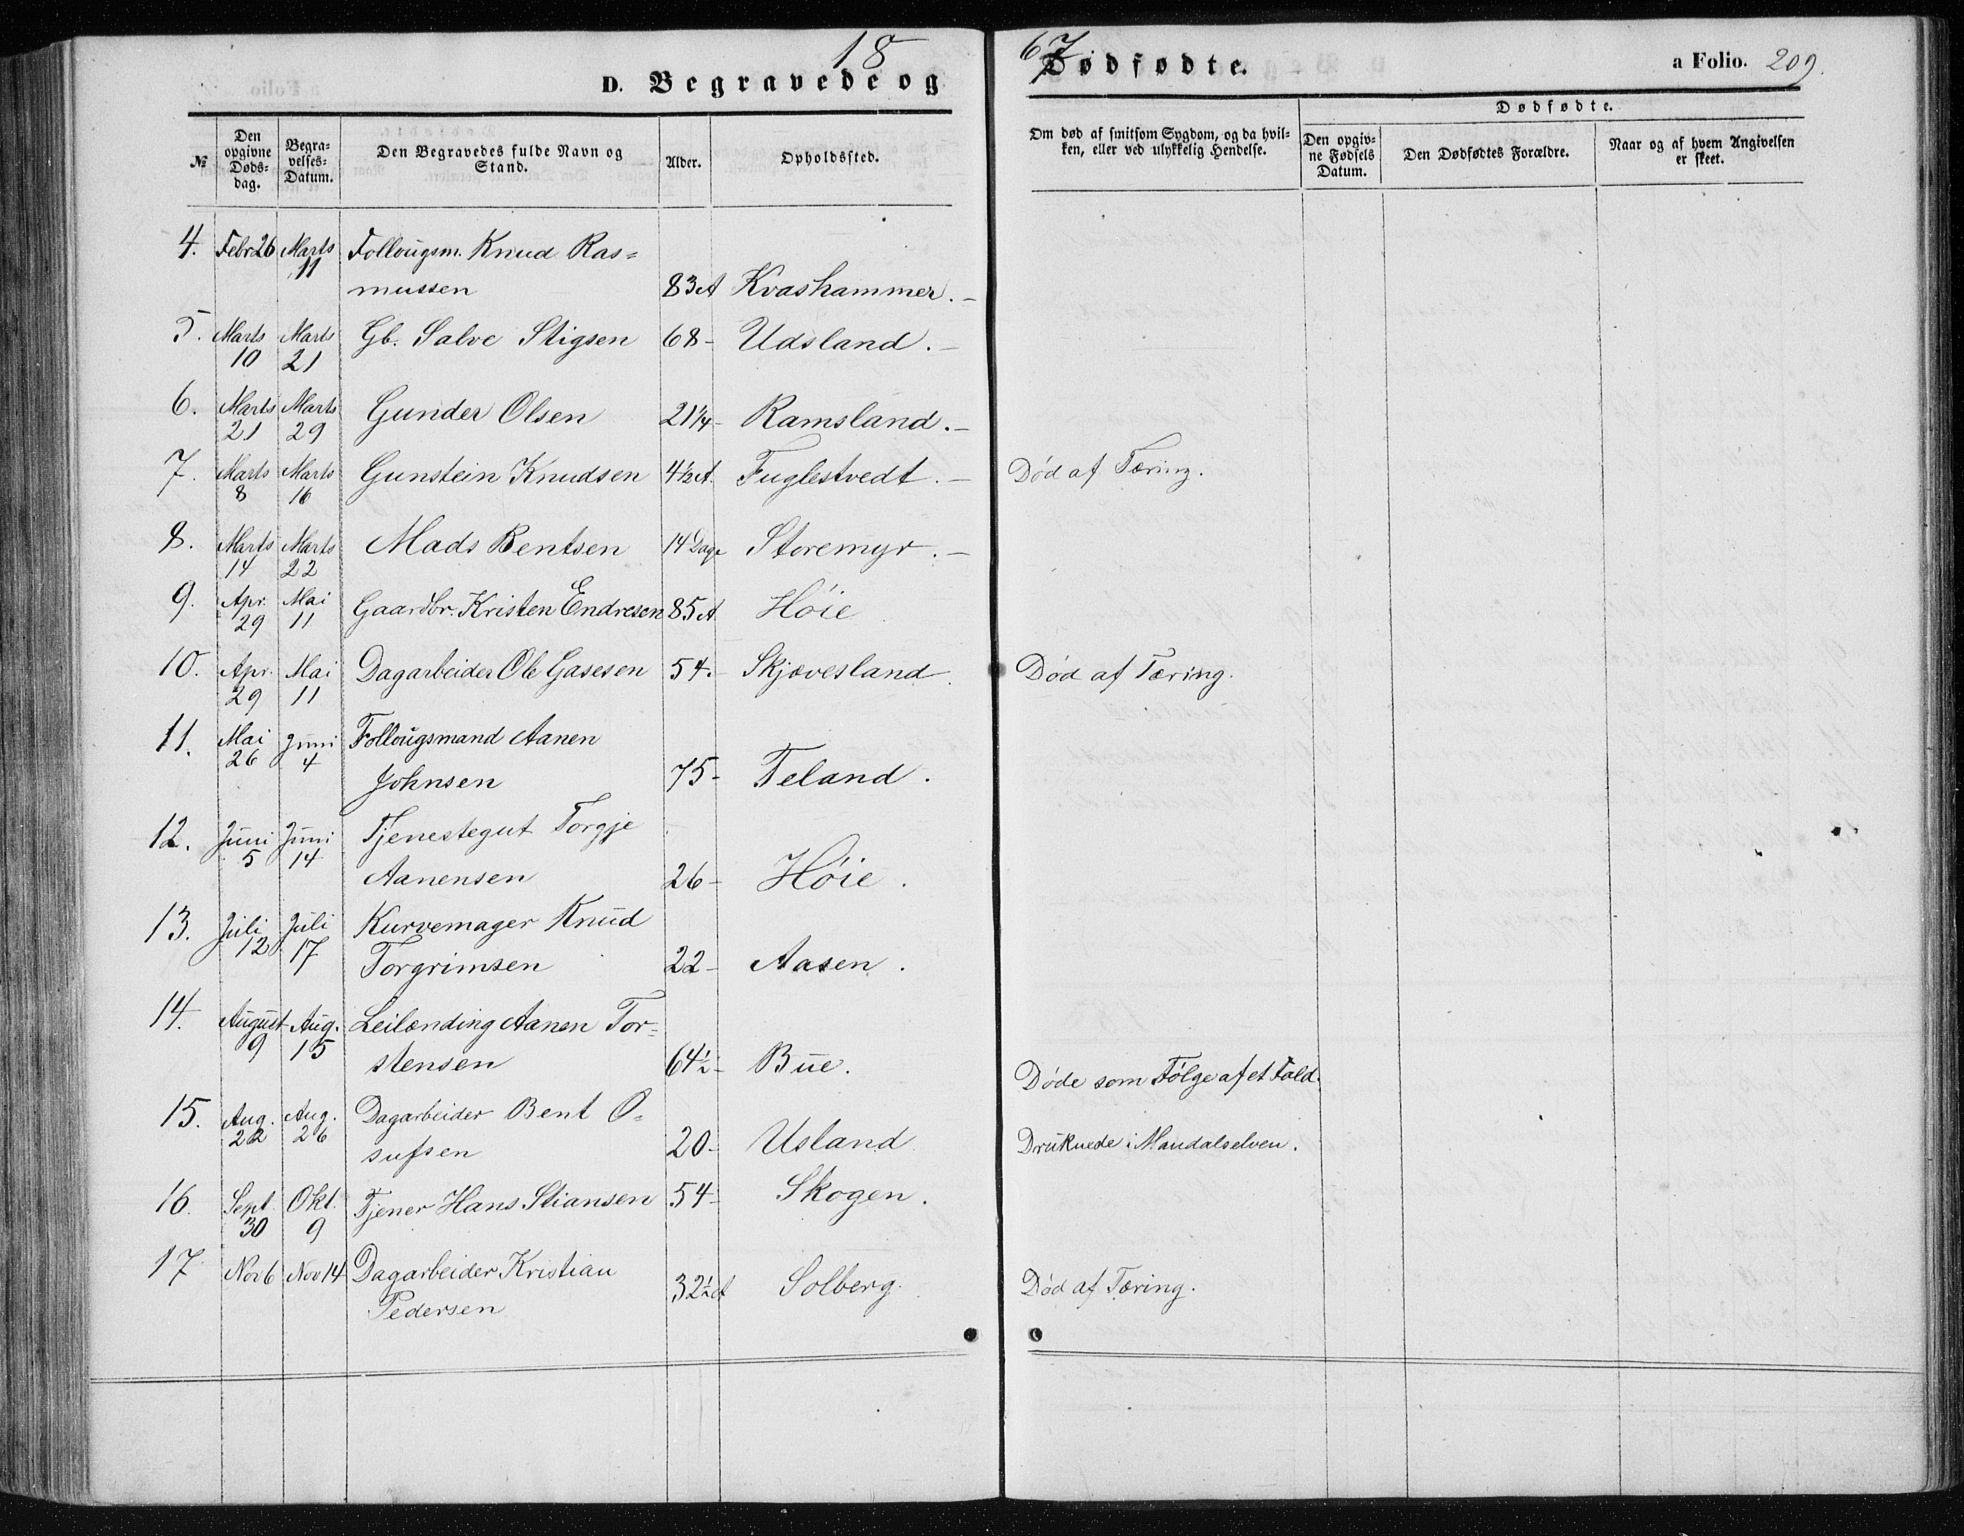 18 67
D. Begravede og Dødfødte. a Folio. 209.
Dødfødte.
№ Den opgivne Døds-dag. Begra-velses-Datum. Den Begravedes fulde Navn og Stand. Alder. Opholdssted. Om død af smitsom Sygdom, og da hvil-ken, eller ved ulykkelig Hendelse. Den opgiv-ne Fødsels Datum. Den Dødfødtes Forældre. Naar og af hvem Angivelsen er skeet.
4. Febr 26 Marts 11 Follougsm. Knud Ras=
mussen 83 A Kvashammer. –
5. Marts 10 Marts 21 Gb. Salve Stigsen 68 – Udsland. –
6. Marts 21 Marts 29 Gunder Olsen 21 1/4 – Ramsland. –
7. Marts 8 Marts 16 Gunstein Knudsen 4 1/2 A. Fuglestvedt. – Död af Tæring.
8. Marts 14 Marts 22 Mads Bentsen 14 Dage Storemyr. –
9. Apr. 29 Mai 11 Gaardbr. Kristen Endresen 85 A Höie
10. Apr. 29 Mai 11 Dagarbeider Ole Gasesen 54. – Skjævesland. Död af Tæring.
11. Mai 26 Juni 4 Follougsmand Aanen
Johnsen 75 – Teland.
12. Juni 5 Juni 14 Tjenestegut Torgje
Aanensen 26 – Höie.
13. Juli 12 Juli 17 Kurvemager Knud
Torgrimsen 22 – Aasen.
14. August 9 Aug. 15 Leilænding Aanen Tor=
stensen 64 1/2 – Bue. Döde som Fölge af et Fald.
15. Aug. 22 Aug. 26 Dagarbeider Bent O-
sufsen 20 – Usland Druknede i Mandalselven.
16. Sept. 30 Okt. 9 Tjener Hans Stiansen 54 – Skogen.
17 Nov 6 Nov 14 Dagarbeider Kristian
Pedersen 32 1/2 A Solberg. Död af Tæring.